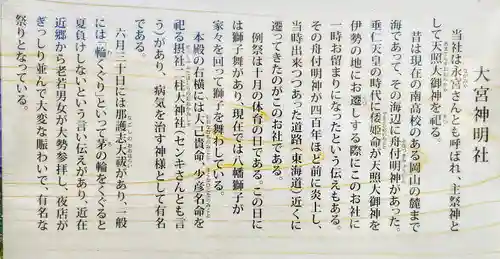 大宮神明社
当社は永宮さんとも呼ばれ、主祭神と
して天照大御神を祀る。
昔は現在の南高校のある岡山の麓まで
海であって、その海辺に舟付明神があった。
垂仁天皇の時代に倭姫命が天照大御神を
伊勢の地にお遷しする際にこのお社に
一時お留まりになったという伝えもある。
その舟付明神が四百年ほど前に炎上し、
当時出来つつあった道路（東海道）近くに
遷ってきたのがこのお社である。
例祭は十月の体育の日である。この日に
は獅子舞があり、現在では八幡獅子が
家々を回って獅子を舞わしている。
本殿の右横には大己貴命、少彦名命を
祀る摂社、柱大神社（センキさんとも言
う）があり、病気を治す神様として有名
である。
六月三十日には那護志大祓があり、一般
には「輪くぐり」といって茅の輪をくぐると
夏負けしないという言い伝えがあり、近在
近郷から老若男女が大勢参拝し、夜店が
ぎっしり並んで大変な賑わいで、有名な
祭りとなっている。